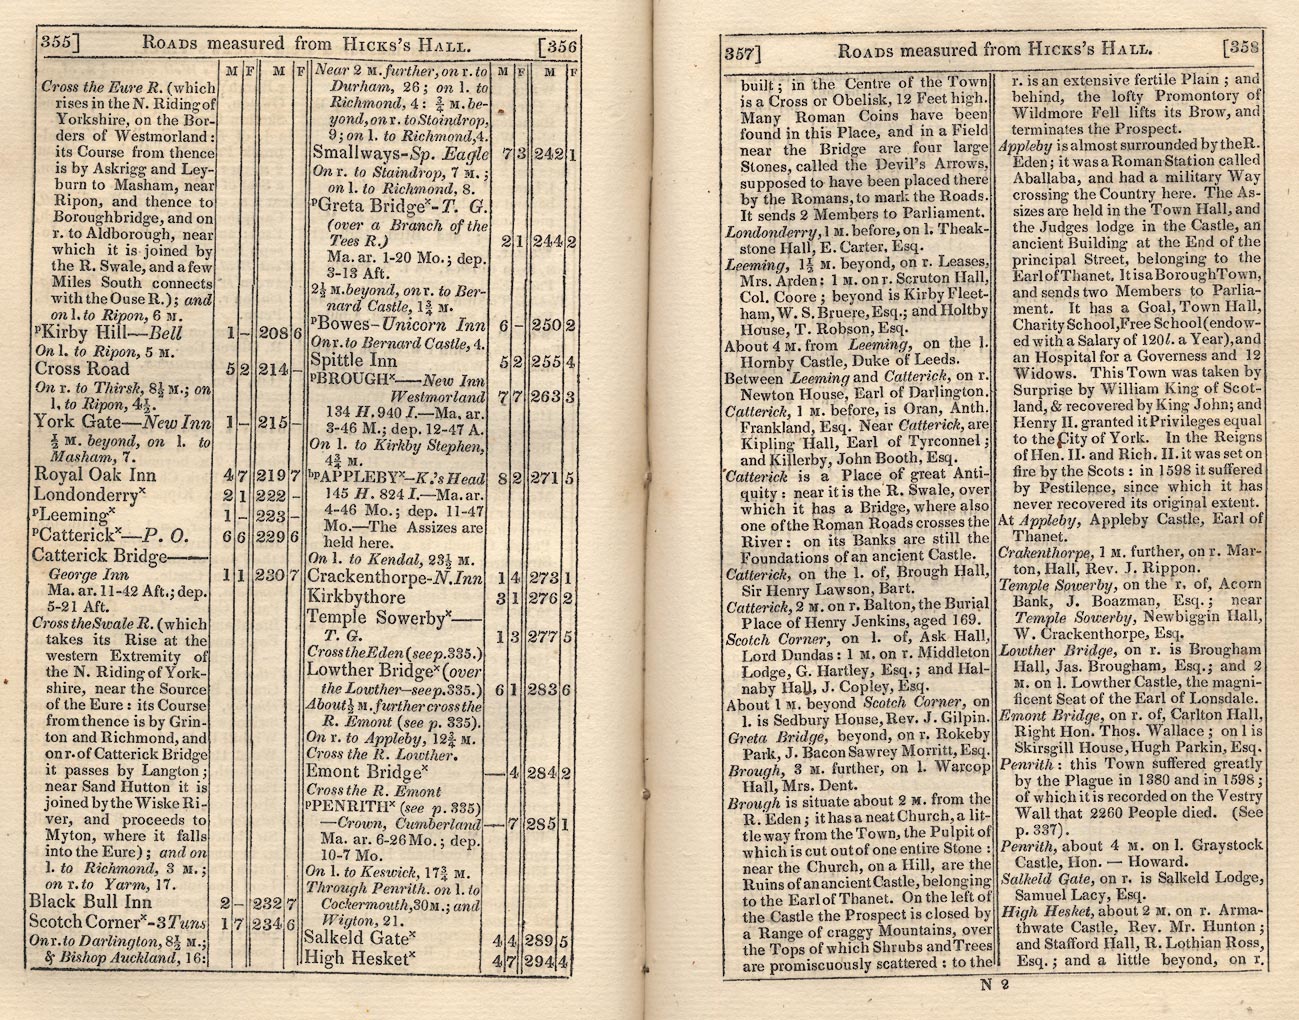 355]
ROADS measured from HICKS'S HALL.
[356
M F M F
Cross the Eure R. (which
rises in the N. Riding of
Yorkshire, on the Bor-
ders of Westmorland:
its Course from thence
is by Askrigg and Ley-
burn to Masham, near
Ripon, and thence to
Boroughbridge, and on
r. to Aldborough, near
which it is joined by
the R. Swale, and a few
Miles South connects
with the Ouse R.); and
on l. to Ripon, 6 M.
pKirby Hill—Bell 1 – 208 6
On l. to Ripon, 5 M.
Cross Road 5 2 214 –
On r. to Thirsk, 8½ M.; on
l. to Ripon, 4½.
York Gate—New Inn 1 – 215 –
½ M. beyond, on l. to
Masham, 7.
Royal Oak Inn 4 7 219 7
Londonderryx 2 1 222 –
pLeemingx 1 – 223 –
pCatterickx—P. O. 6 6 229 6
Catterick Bridge——
George Inn 1 1 230 7
Ma. ar. 11-42 Aft.; dep.
5-21 Aft.
Cross the Swale R. (which
takes its Rise at the
western Extremity of
the N. Riding of York-
shire, near the Source
of the Eure: its Course
from thence is by Grin-
ton and Richmond, and
on r. of Catterick Bridge
it passes by Langton;
near Sand Hutton it is
joined by the Wiske Ri-
ver, and proceeds to
Myton, where it falls
into the Eure); and on
l. to Richmond, 3 M.;
on r. to Yarm, 17.
Black Bull Inn 2 – 232 7
Scotch Cornerx-3 Tuns 1 7 234 6
On r. to Darlington, 8½ M.;
& Bishop Auckland, 16:
M F M F
Near 2 M. further, on r. to
Durham, 26; on l. to
Richmond, 4: ¾ M. be-
yond, on r. to Staindrop,
9; on l. to Richmond, 4.
Smallways-Sp. Eagle 7 3 242 1
On r. to Staindrop, 7 M.;
on l. to Richmond, 8.
pGreta Bridgex-T. G.
(over a Branch of the
Tees R.) 2 1 244 2
Ma. ar. 1-20 Mo.; dep.
3-13 Aft.
2½ M. beyond, on r. to Ber-
nard Castle, 1¾ M.
pBowes—Unicorn Inn 6 – 250 2
On r. to Bernard Castle, 4.
Spittle Inn 5 2 255 4
pBROUGHx—New Inn
Westmorland 7 7 263 3
134 H. 940 I.—Ma. ar.
3-46 M.; dep. 12-47 A.
On l. to Kirkby Stephen,
4¾ M.
bpAPPLEBYx—K.'s Head 8 2 271 5
145 H. 824 I.—Ma. ar.
4-46 Mo.; dep. 11-47
Mo.—The Assizes are
held here.
On l. to Kendal, 23½ M.
Crackenthorpe-N. Inn 1 4 273 1
Kirkbythore 3 1 276 2
Temple Sowerbyx—
T. G. 1 3 277 5
Cross the Eden (see p. 335.)
Lowther Bridgex (over
the Lowther—see p. 335.) 6 1 283 6
About ½ M. further cross the
R. Emont (see p. 335).
On r. to Appleby, 12¾ M.
Cross the R. Lowther.
Emont Bridgex — 4 284 2
Cross the R. Emont
pPENRITHx (see p. 335)
—Crown, Cumberland — 7 285 1
Ma. ar. 6-26 Mo.; dep.
10-7 Mo.
On l. to Keswick, 17¾ M.
Through Penrith. on l. to
Cockermouth, 30 M.; and
Wigton, 21.
Salkeld Gatex 4 4 289 5
High Hesketx 4 7 294 4
357]
ROADS measured from HICKS'S HALL.
[358
built; in the Centre of the Town
is a Cross or Obelisk, 12 Feet high.
Many Roman Coins have been
found in this Place, and in a Field
near the Bridge are four large
Stones, called the Devil's Arrows,
supposed to have been placed there
by the Romans, to mark the Roads.
It sends 2 Members to Parliament.
Londonderry, 1 M. before, on l. Theak-
stone Hall, E. Carter, Esq.
Leeming, 1½ M. beyond, on r. Leases,
Mrs. Arden: 1 M. on r. Scruton Hall,
Col. Coore; beyond is Kirby Fleet-
ham, W. S. Bruere, Esq.; and Holtby
House, T. Robson, Esq.
About 4 M. from Leeming, on the l.
Hornby Castle, Duke of Leeds.
Between Leeming and Catterick, on r.
Newton House, Earl of Darlington.
Catterick, 1 M. before, is Oran, Anth.
Frankland, Esq. Near Catterick, are
Kipling Hall, Earl of Tyrconnel;
and Killerby, John Booth, Esq.
Catterick is a Place of great Anti-
quity: near it is the R. Swale, over
which it has a Bridge, where also
one of the Roman Roads crosses the
River: on its Banks are still the
Foundations of an ancient Castle.
Catterick, on the l. of, Brough Hall,
Sir Henry Lawson, Bart.
Catterick, 2 M. on r. Balton, the Burial
Place of Henry Jenkins, aged 169.
Scotch Corner, on l. of, Ask Hall,
Lord Dundas: 1 M. on r. Middleton
Lodge, G. Hartley, Esq.; and Hal-
naby Hall, J. Copley, Esq.
About 1 M. beyond Scotch Corner, on
l. is Sedbury House, Rev. J. Gilpin.
Greta Bridge, beyond, on r. Rokeby
Park, J. Bacon Sawrey Morritt, Esq.
Brough, 3 M. further, on l. Warcop
Hall, Mrs. Dent.
Brough is situate about 2 M. from the
R. Eden; it has a neat Church, a lit-
tle way from the Town, the Pulpit of
which is cut out of one entire Stone:
near the Church, on a Hill, are the
Ruins of an ancient Castle, belonging
to the Earl of Thanet. On the left of
the Castle the Prospect is closed by
a Range of craggy Mountains, over
the Tops of which Shrubs and Trees
are promiscuously scattered: to the
r. is an extensive fertile Plain; and
behind, the lofty Promontory of
Wildmore Fell lifts its Brow, and
terminates the Prospect.
Appleby is almost surrounded by the R.
Eden; it was a Roman Station called
Aballaba, and had a military Way
crossing the Country here. The As-
sizes are held in the Town Hall, and
the Judges lodge in the Castle, an
ancient Building at the End of the
principal Street, belonging to the
Earl of Thanet. It is a Borough Town,
and sends two Members to Parlia-
ment. It has a Goal, Town Hall,
Charity School, Free School (endow-
ed with a Salary of 120l. a Year), and
an Hospital for a Governess and 12
Widows. This Town was taken by
Surprise by William King of Scot-
land, & recovered by King John; and
Henry II. granted it Privileges equal
to the City of York. In the Reigns
of Hen. II. and Rich. II. it was set on
fire by the Scots: in 1598 it suffered
by Pestilence, since which it has
never recovered its original extent.
At Appleby, Appleby Castle, Earl of
Thanet.
Crakenthorpe, 1 M. further, on r. Mar-
ton, Hall, Rev. J. Rippon.
Temple Sowerby, on the r. of, Acorn
Bank, J. Boazman, Esq.; near
Temple Sowerby, Newbiggin Hall,
W. Crackenthorpe, Esq.
Lowther Bridge, on r. is Brougham
Hall, Jas. Brougham, Esq.; and 2
M. on l. Lowther Castle, the magni-
ficent Seat of the Earl of Lonsdale.
Emont Bridge, on r. of, Carlton Hall,
Right Hon. Thos. Wallace; on l is
Skirsgill House, Hugh Parkin, Esq.
Penrith: this Town suffered greatly
by the Plague in 1380 and in 1598;
of which it is recorded on the Vestry
Wall that 2260 People died. (See
p. 337).
Penrith, about 4 M. on l. Graystock
Castle, Hon. — Howard.
Salkeld Gate, on r. is Salkeld Lodge,
Samuel Lacy, Esq.
High Hesket, about 2 M. on r. Arma-
thwate Castle, Rev. Mr. Hunton;
and Stafford Hall, R. Lothian Ross,
Esq.; and a little beyond, on r.
N 2